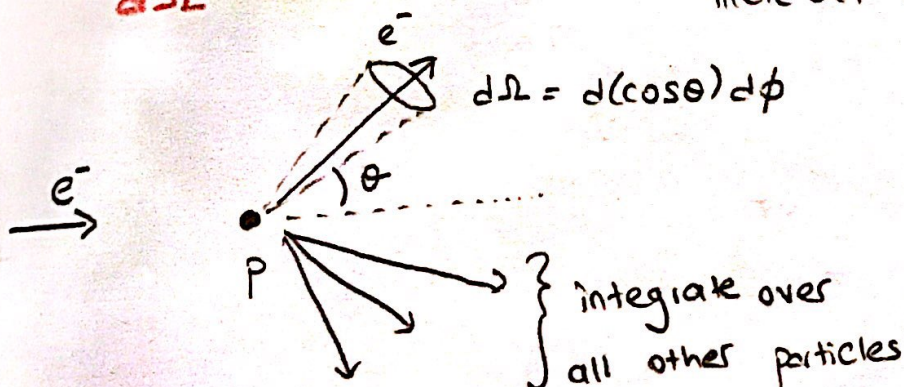 e⁻
dΩ = d(cosθ) dϕ
e⁻
θ
P
integrate over
all other particles